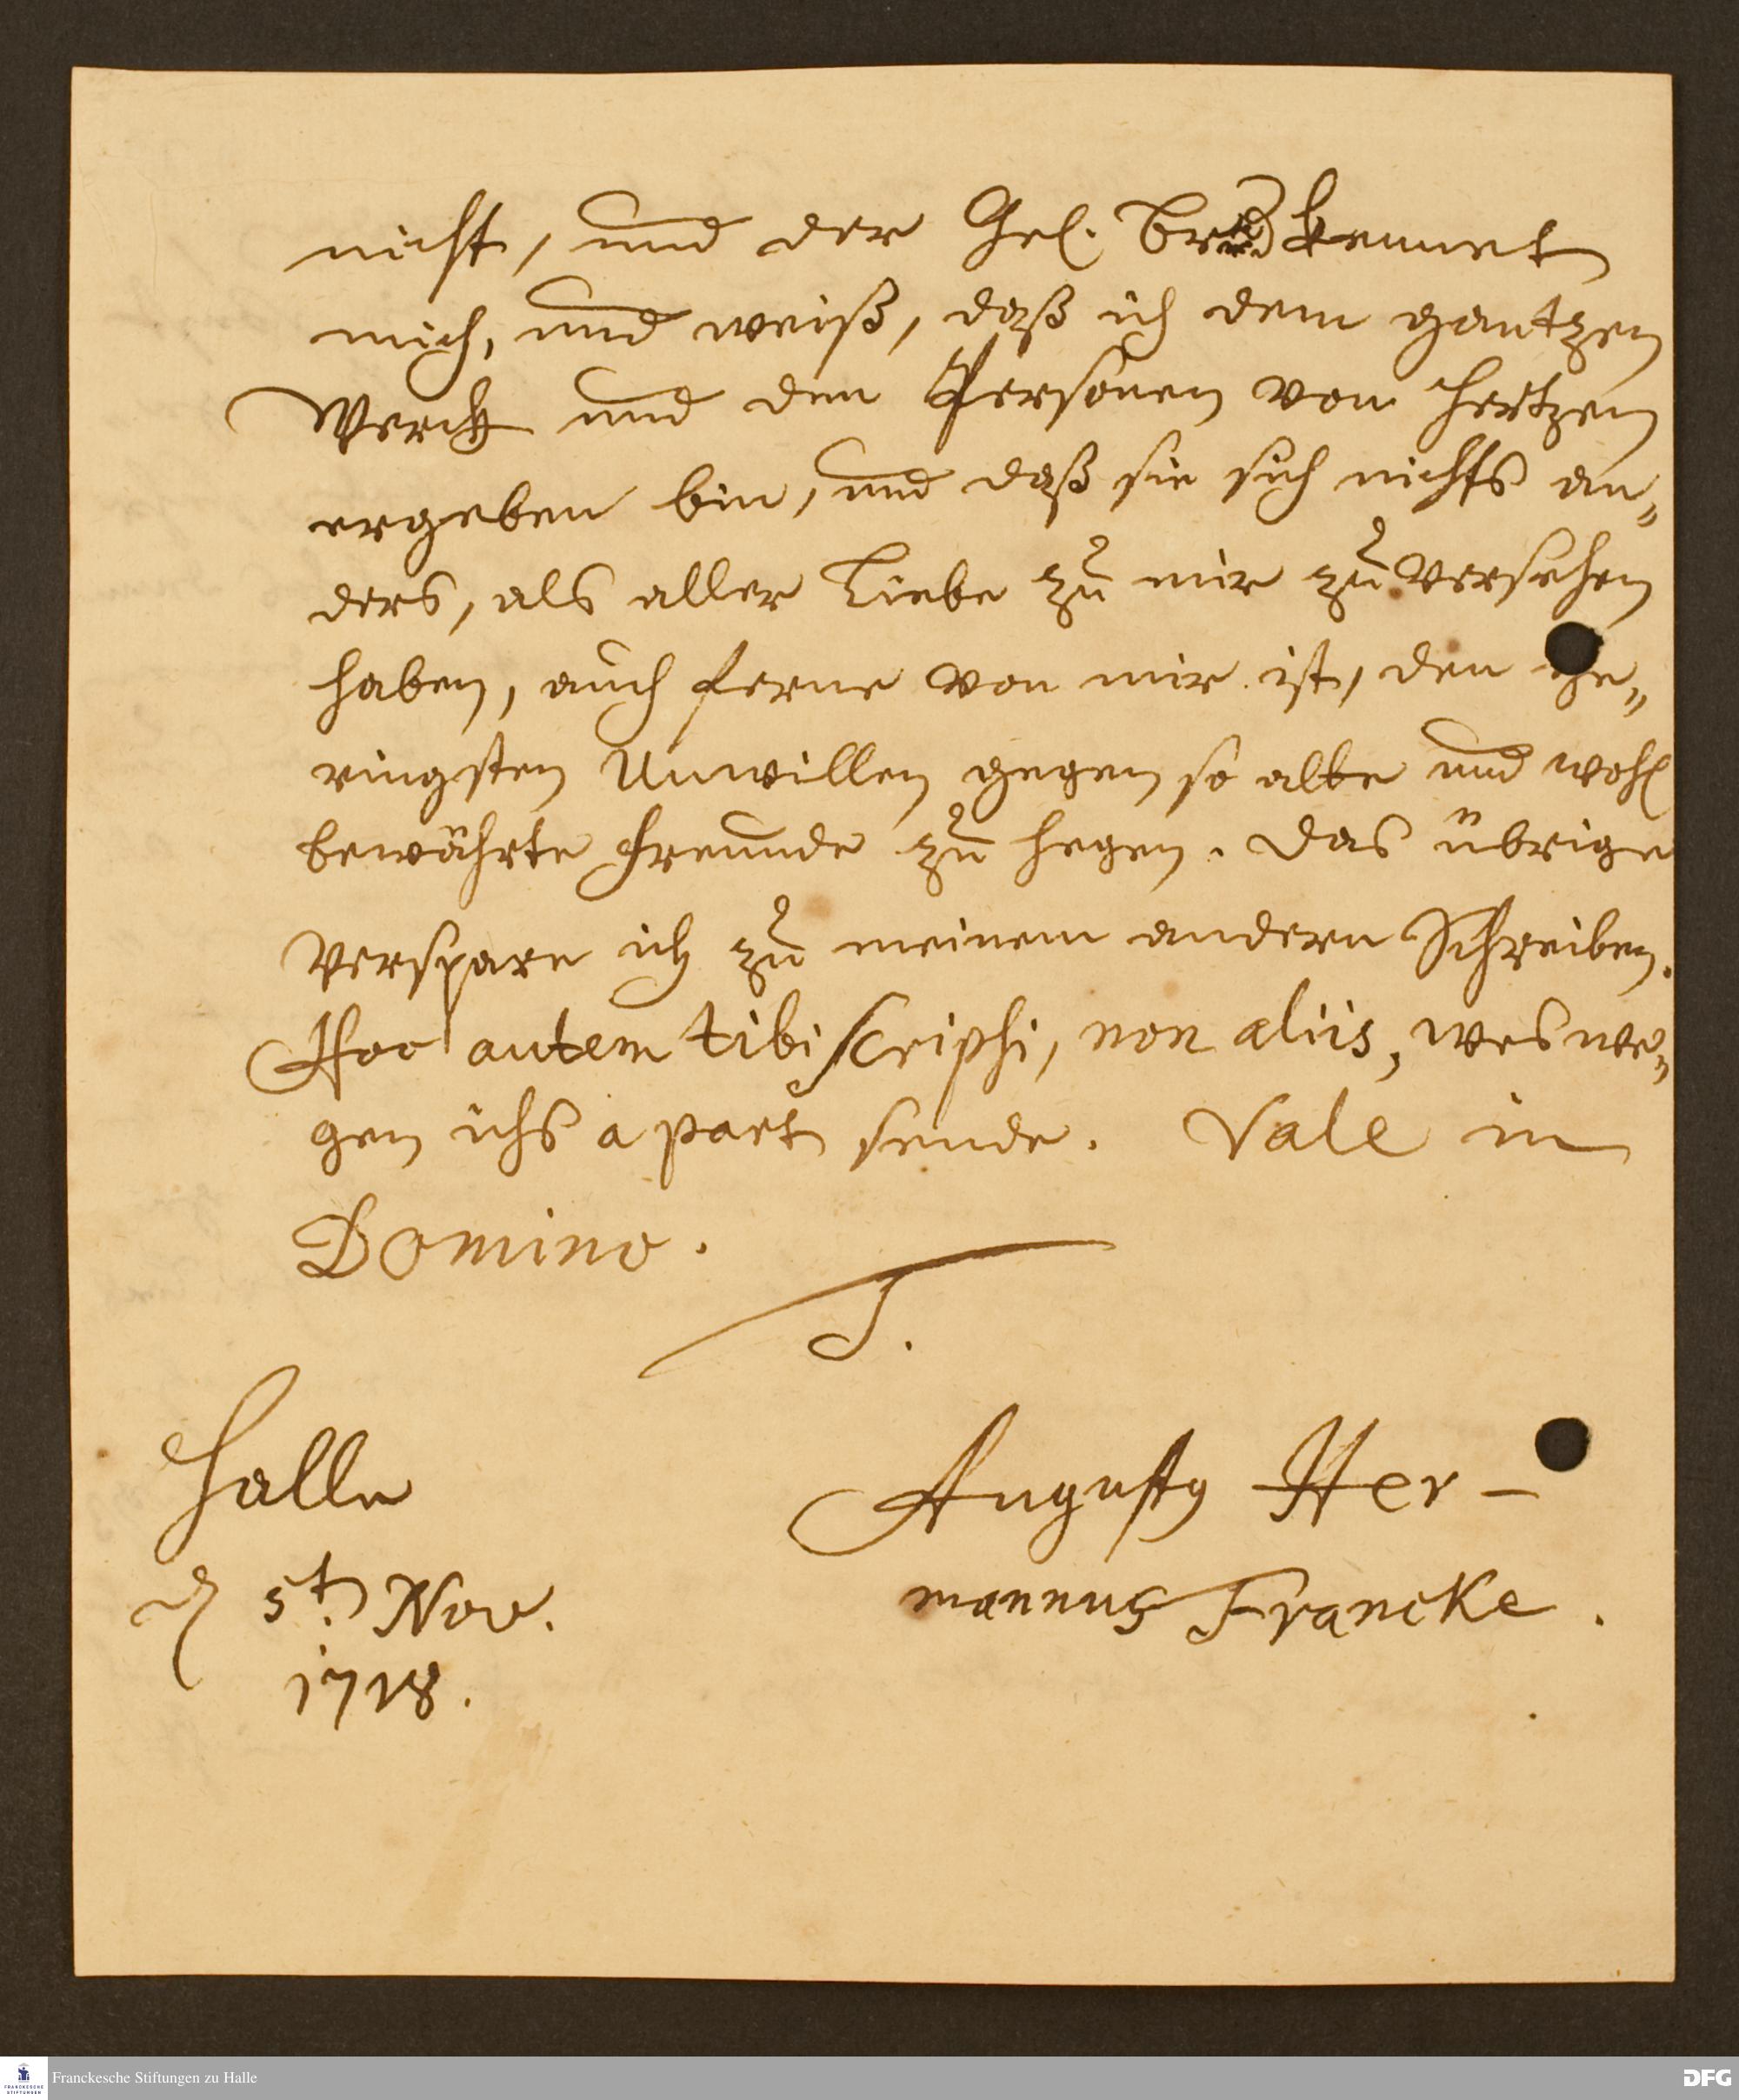 nicht, und der Gel. Brud kennet
mich, und weiß, daß ich dem gantzen
Werck und den Personen von Hertzen
ergeben bin, und daß sie sich nichts an„
ders, als aller Liebe zu mir zu versehen
haben, auch ferne von mir ist, den ge„
ringsten Unwillen gegen so alte und wohl
bewährte Freunde zu hegen. Das übrige
verspare ich zu meinem andern Schreiben.
Hoc autem tibi scripsi, non aliis, weswe„
gen ichs a part sende. Vale in
Domino.
T.
Halle
d 5t. Nov.
1718.
Augustus Her-
mannus Francke.
Franckesche Stiftungen zu Halle
FRANCKESCHE STIFTUNGEN
DFG